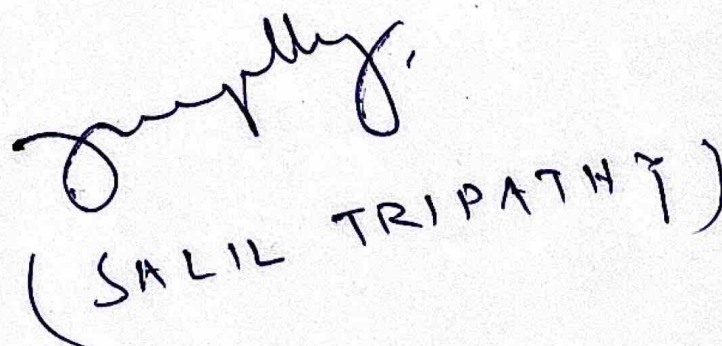 (SALIL TRIPATHY)